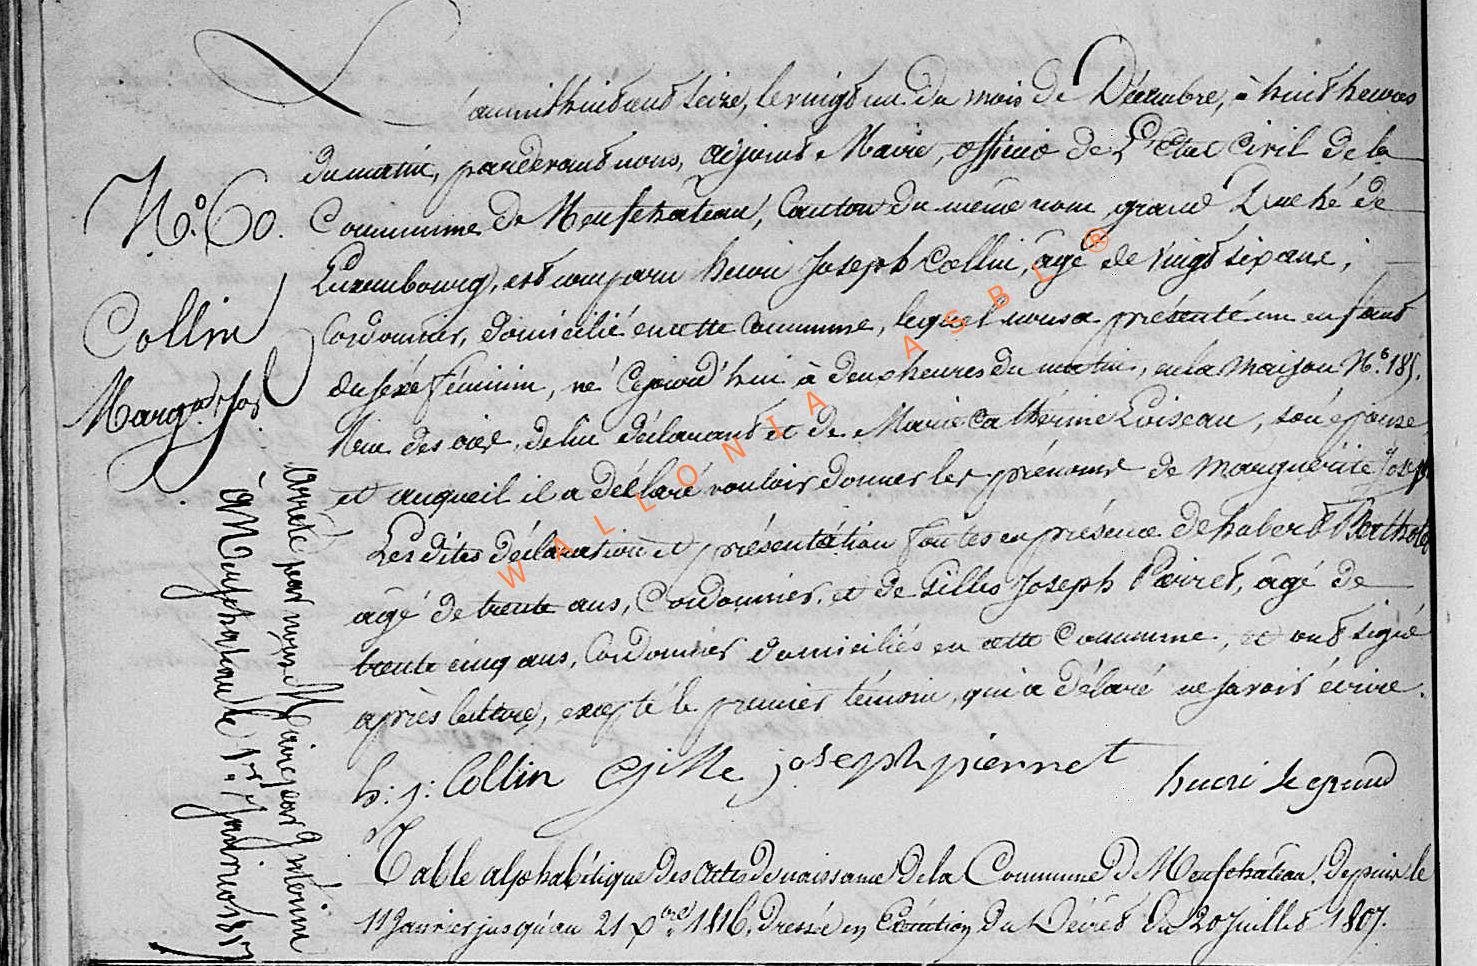 L'an mil huit cent Seize, le vingt un du mois de Décembre, à huit heures
du matin, pardevant nous, adjoint Maire, officier de L'Etat Civil de la
Commune de Neufchâteau, Canton du même nom, grand Duché de
Luxembourg, est comparu henri Joseph Collin, âgé de vingt six ans,
Cordonnier, domicilié en cette Commune, lequel nous a présenté un enfant
du sexe féminin, né Cejourd'hui à deux heures du matin, en la Maison N.º 185.
Rue des , de lui déclarant et de Marie Catherine Loiseau, son épouse
et auquel il a déclaré vouloir donner les prénoms de Marguerite Josep
Les dites déclaration et présentation faites en présence de hubert Berthol
âgé de trente ans, Cordonnier, et de Gilles Joseph Pierret, âgé de
trente cinq ans, Cordonnier domiciliés en cette Commune, et ont signé
après lecture, excepté le premier témoin, qui a déclaré ne savoir écrire.
h: j: Collin Gille joseph pierret henri Legrand
Table alphabétique des Actes de naissance de la Commune de Neufchâteau, depuis le
11 Janvier jusqu'au 21 Xbre 1816, dressée en Exécution du Décret du 20 Juillet 1807.
Nº 60.
Collin
Margte Jos
arrêté par nous Maire par intérim
à Neufchateau le 1er Janvier 1817
WALLONIA ASBL ®